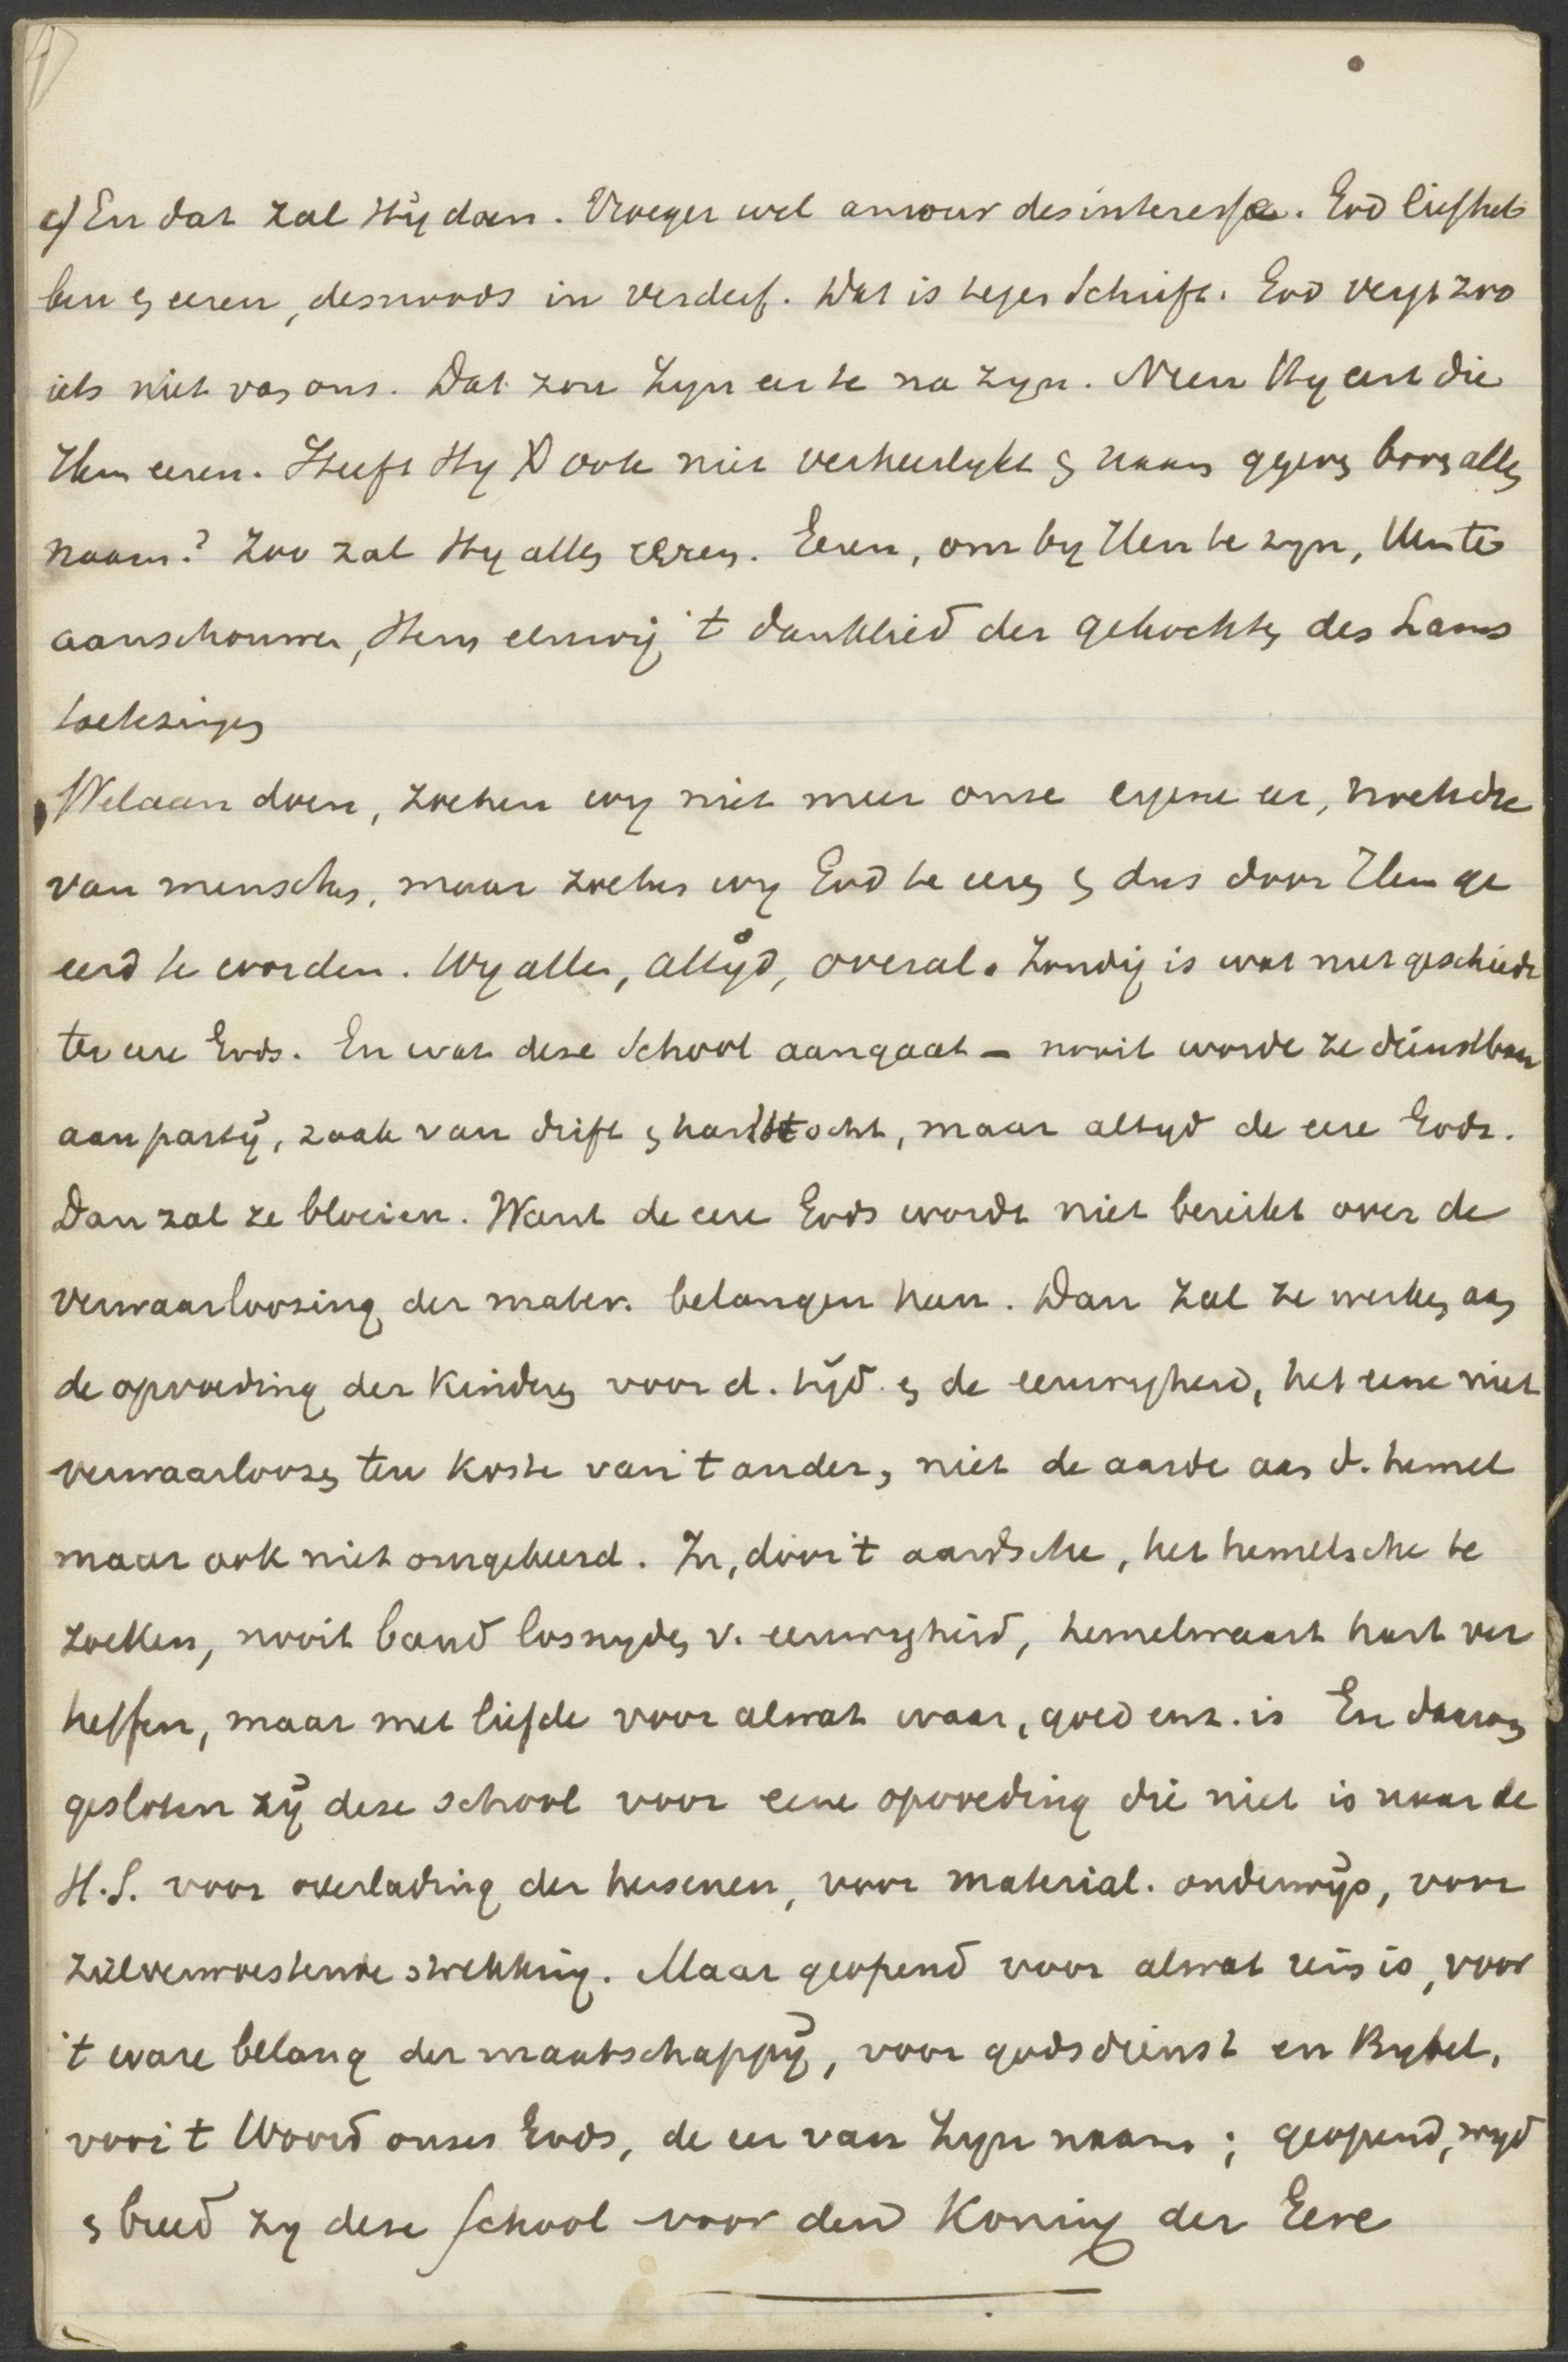 c) En dat zal Hij doen. Vroeger wel amour desinteresse. God liefheb
ben en eeren, desnoods in verderf. Dat is tegen Schrift. God vergt zoo
iets niet van ons. Dat zou Zyn eer te na zyn. Neen Hy eert die
Hem eeren. Heeft Hy X ook niet verheerlykt en naam gegeven boven allen
naam? Zoo zal Hy allen eeren. Eeren, om by Hem te zyn, Hem te
aanschouwen, Hem eeuwig 't danklied der gekochten des Lams
toetezingen
Welaan dan, zoeken wy niet meer onze eigene eer, noch die
van menschen, maar zoeken wy God te eeren en dus door Hem ge
eerd te worden. Wy allen, altyd, overal. Zondig is wat niet geschiedt
ter eere Gods. En wat deze School aangaat – nooit worde ze dienstbaar
aan partij, zaak van drift en hartstocht, maar altyd de eere Gods.
Dan zal ze bloeien. Want de eere Gods wordt niet bereikt over de
verwaarloozing der mater. belangen heen. Dan zal ze werken aan
de opvoeding der kinderen voor d. tijd en de eeuwigheid, het eene niet
verwaarloozen ten koste van 't ander, niet de aarde aan d. hemel
maar ook niet omgekeerd. In, door 't aardsche, het hemelsche te
zoeken, nooit band lossnyden v. eeuwigheid, hemelwaart hart ver
heffen, maar met liefde voor alwat waar, goed enz. is En daarom
gesloten zij deze school voor eene opvoeding die niet is naar de
H.S. voor overlading der hersenen, voor material. onderwijs, voor
zielverwoestende strekking. Maar geopend voor alwat rein is, voor
't ware belang der maatschappij, voor godsdienst en Bybel,
voor 't Woord onzes Gods, de eer van Zyn naam; geopend, wyd
en breed zy deze school voor den Koning der Eere